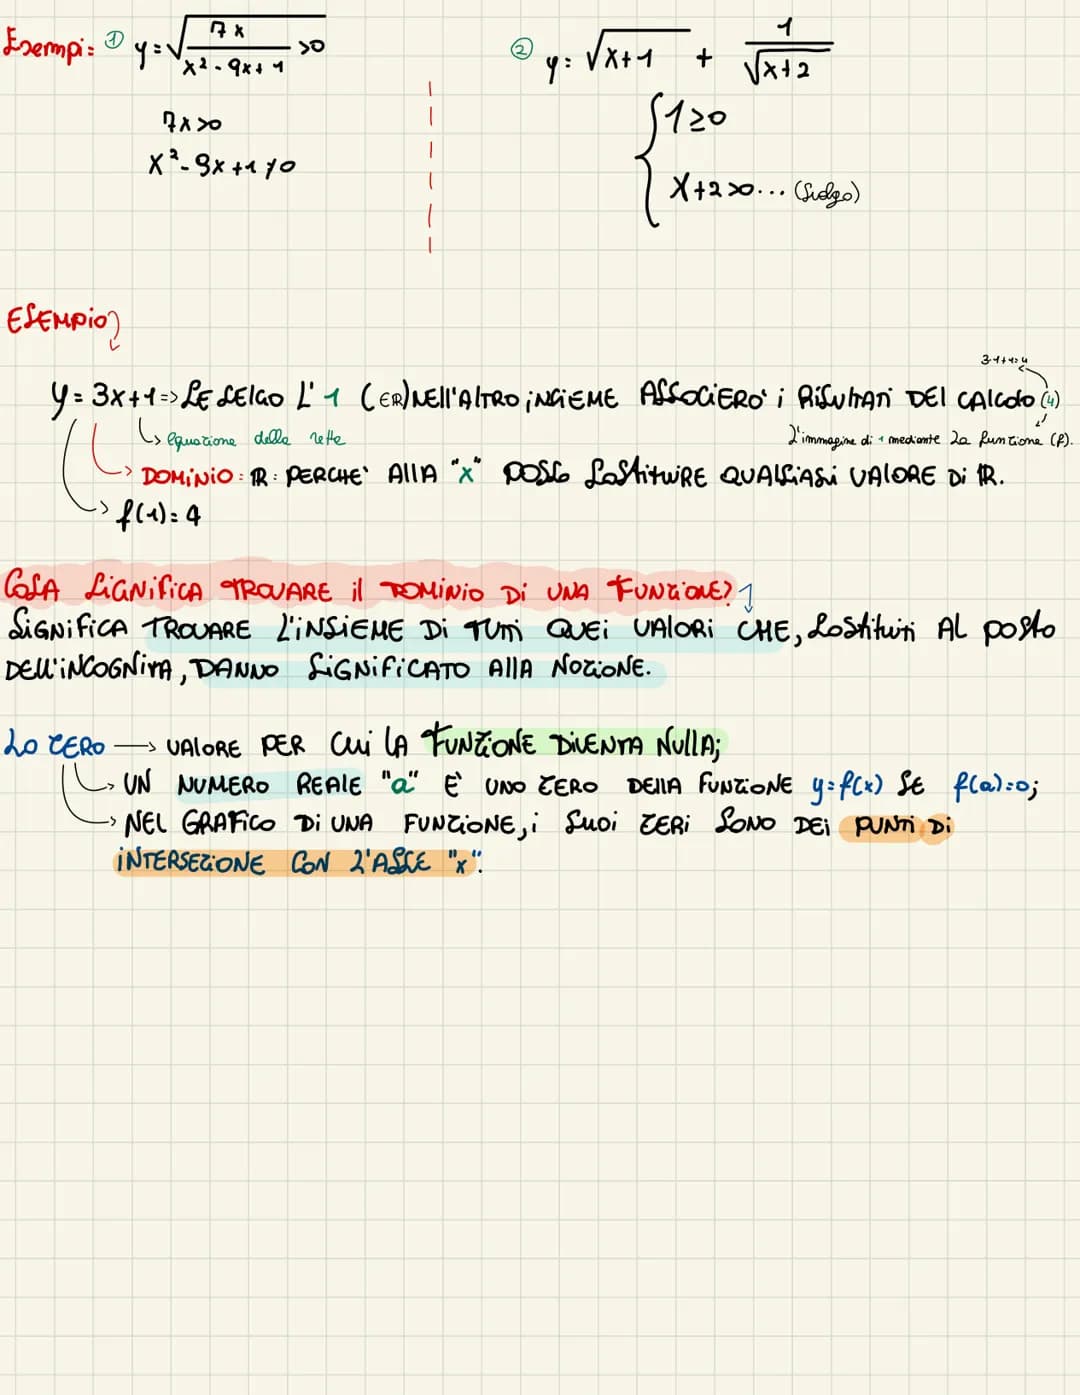 Esempi: ① y=√7x/x²-9x+1 >0
7x>0
x²-9x+1≠0
② y: √x+1 + 1/√x+2
{1≥0
x+2>0... (svolgo)
ESEMPIO
3·1+1=4
y=3x+1=> SE SCELGO L'1 (∈R) NELL'ALTRO INSIEME ASSOCIERO' i RISULTATI DEL CALCOLO (4)
equazione della retta
L'immagine di 1 mediante la funzione (f).
DOMINIO: R: PERCHE' ALLA "x" POSSO SOSTITUIRE QUALSIASI VALORE DI R.
f(1)=4
COSA SIGNIFICA TROVARE il DOMINIO DI UNA FUNZIONE?
SIGNIFICA TROVARE L'INSIEME DI TUTTI QUEI VALORI CHE, SOSTITUITI AL POSTO
DELL'INCOGNITA, DANNO SIGNIFICATO ALLA NOZIONE.
LO ZERO → VALORE PER CUI LA FUNZIONE DIVENTA NULLA;
UN NUMERO REALE "a" È UNO ZERO DELLA FUNZIONE y=f(x) SE f(a)=0;
NEL GRAFICO DI UNA FUNZIONE, i SUOI ZERI SONO DEI PUNTI DI
INTERSEZIONE CON L'ASSE "x".